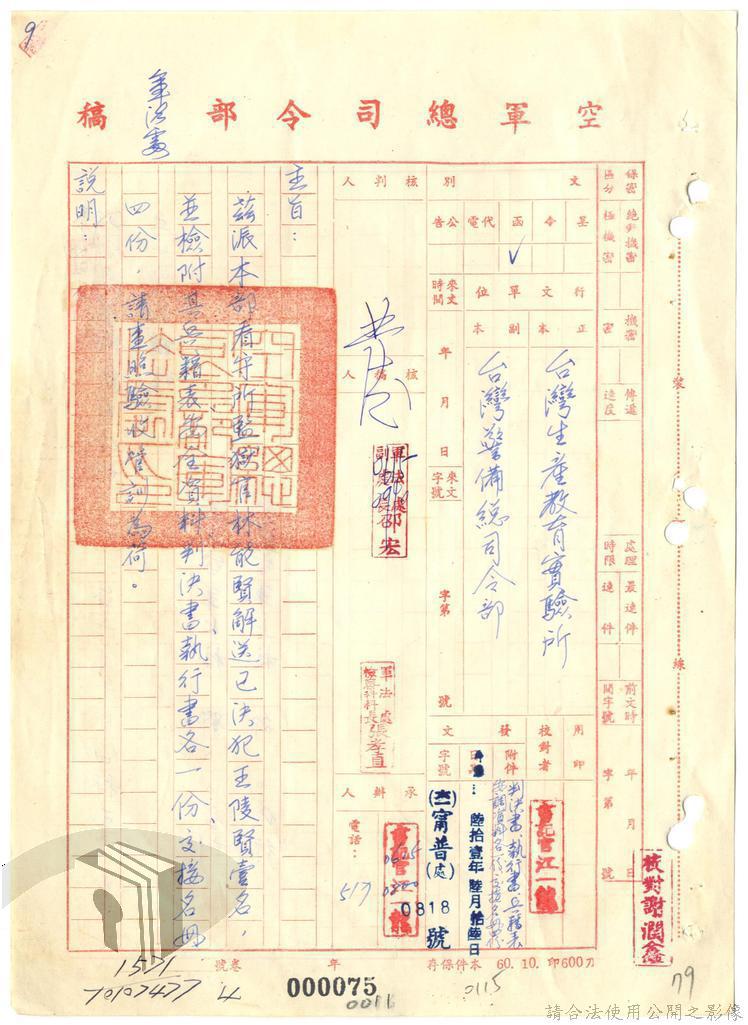 9
空軍總司令部 稿
軍法處
保密區分
絕對機密
極機密
機密
密
傳遞速度
處理時限
最速件
速件
前文時間字號
年 月 日
字第 號
裝
線
文別
呈
令
函 ˇ
代電
公告
行文單位
正本
台灣生產教育實驗所
副本
台灣警備總司令部
來文時間
年 月 日
來文字號
字第 號
用印
校對者
書記官江一龍
發文
附件
判決書、執行書、兵籍表
日期
陸拾壹年陸月拾陸日
字號
(六一)甯普(處)
0818 號
核判人
核稿人
軍法處
副處長邵宏
軍法處
張孝直
承辦人
電話:
517
主旨:
茲派本部看守所監獄官林能賢解送已決犯王陵賢壹名,
並檢附其兵籍表、安全資料、判決書、執行書各一份、交接名冊
四份,請查照驗收管訓為荷。
說明:
校對謝潤鑫
年
卷號
本件保存
60. 10. 印600刀
1571
70107477
4
000075
0016
0115
79
請合法使用公開之影像